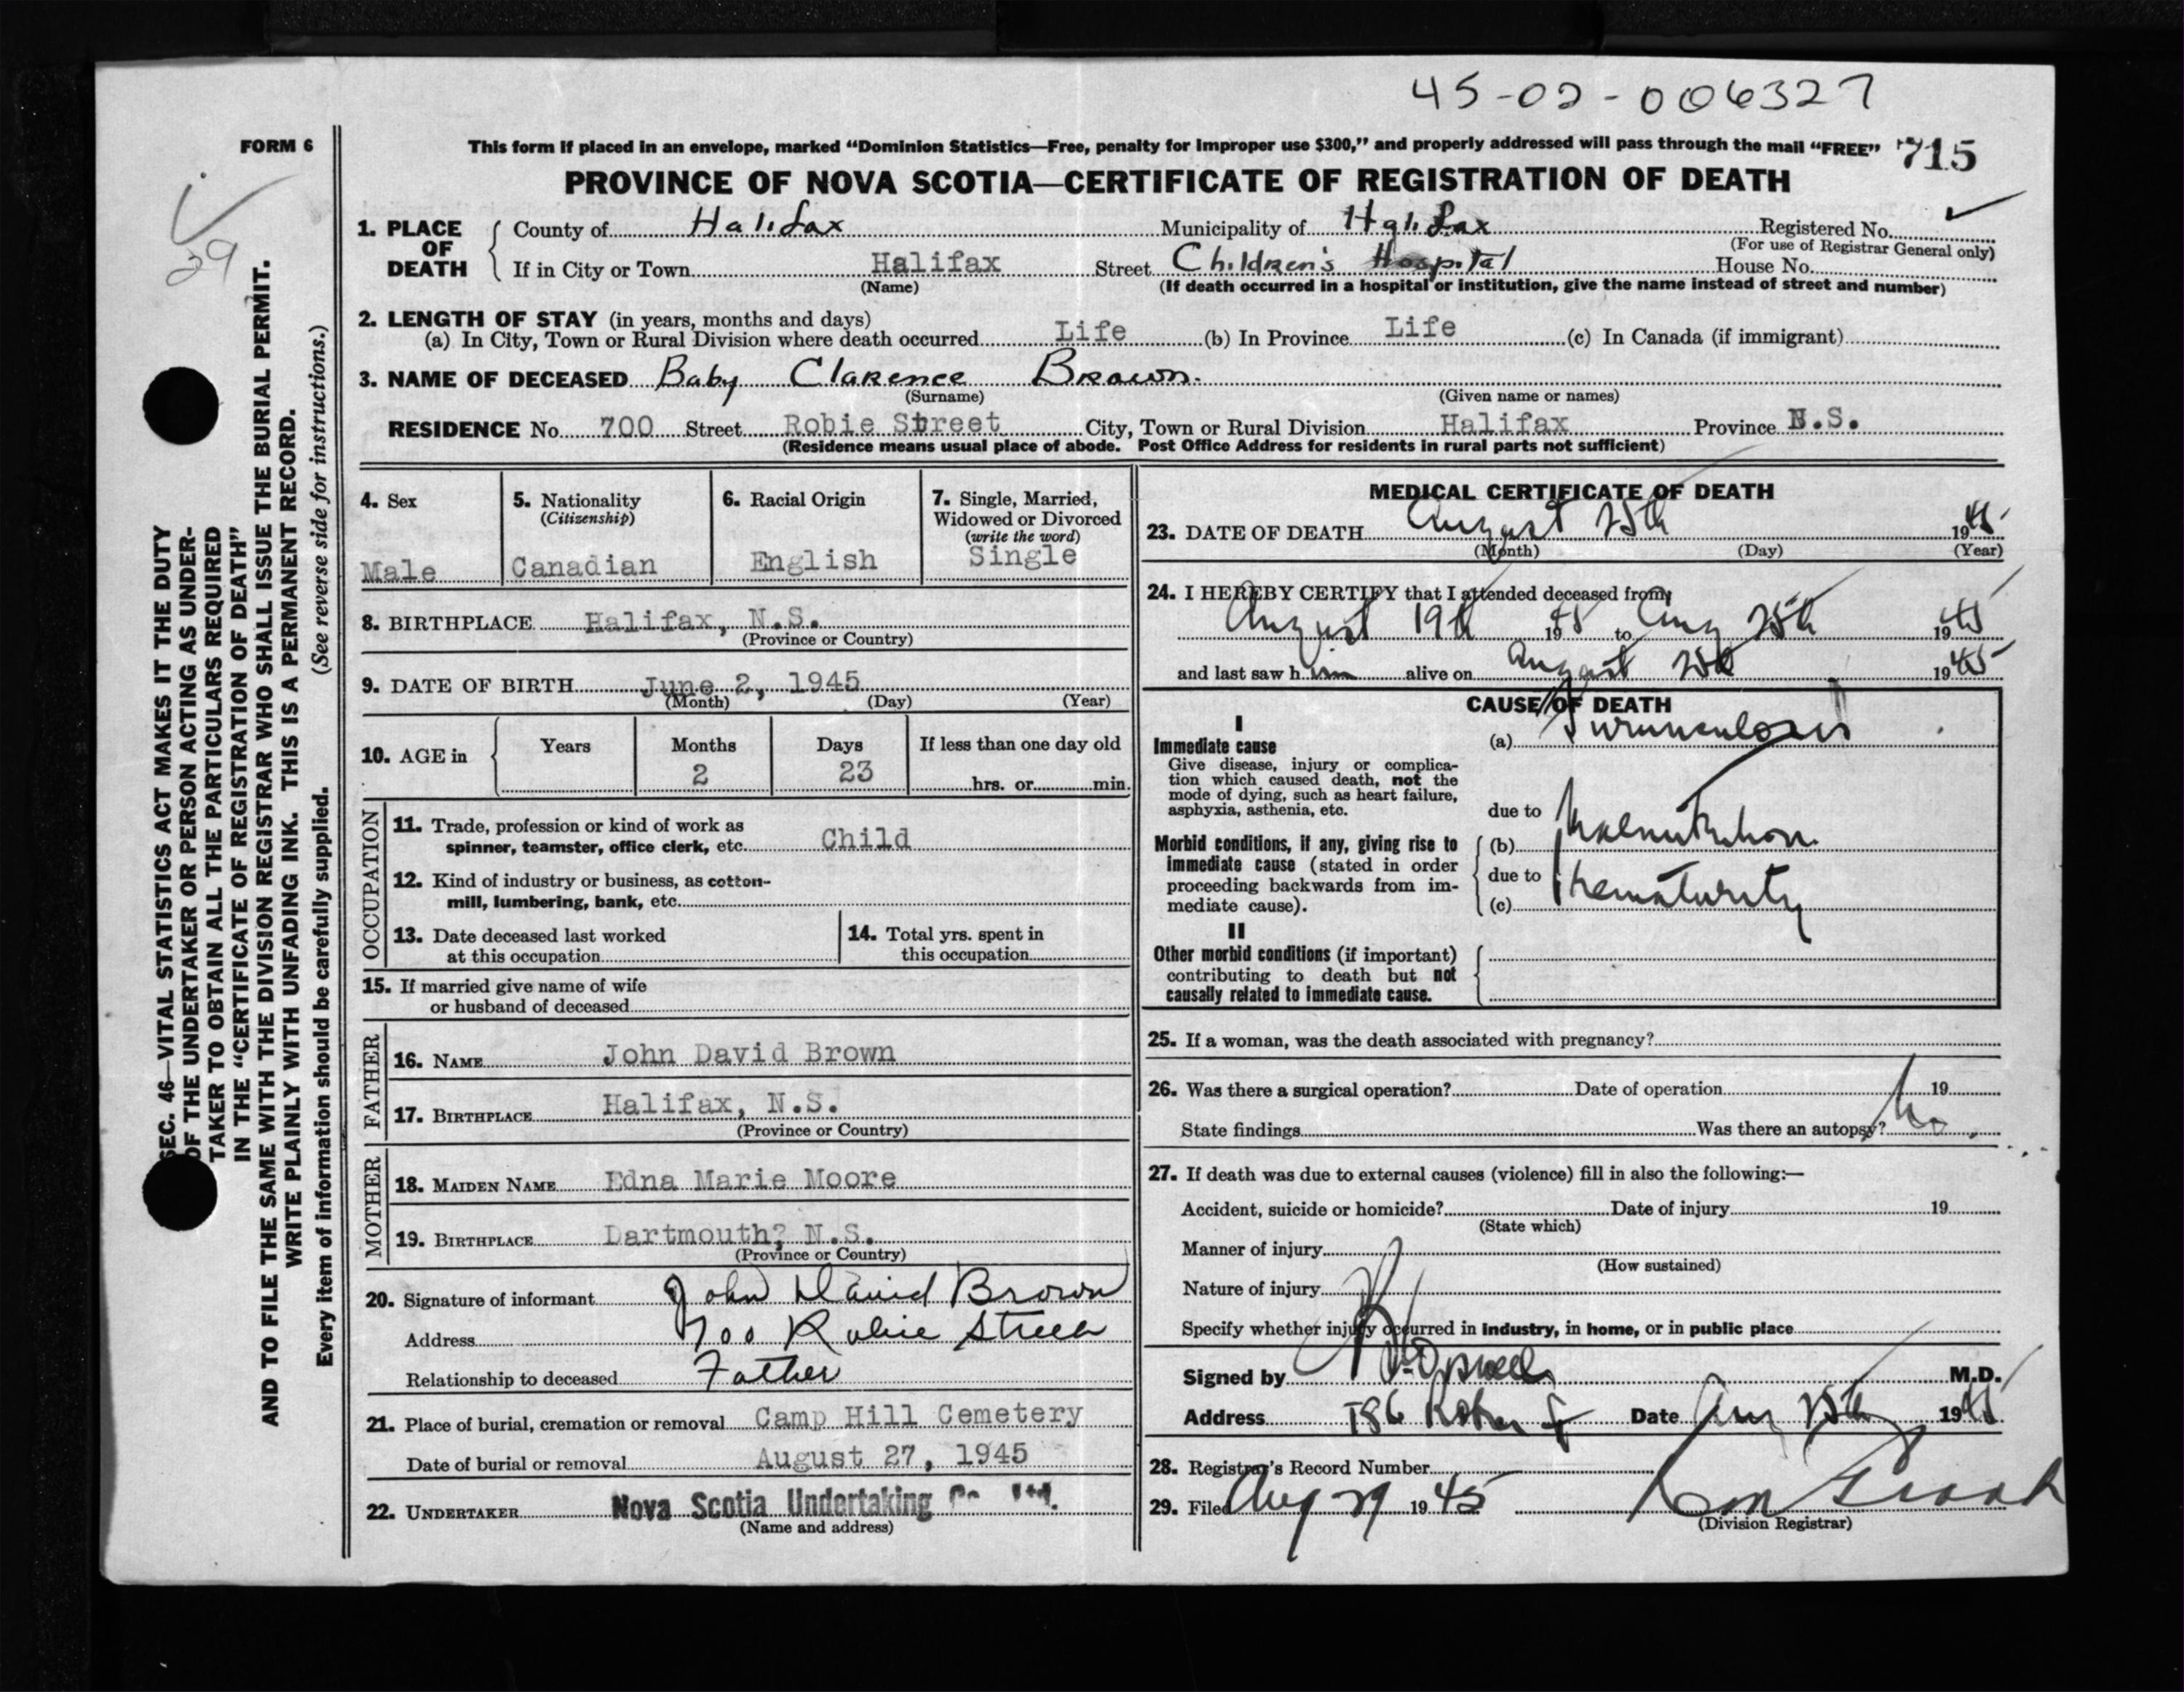 45-02-006327
FORM 6
This form if placed in an envelope, marked "Dominion Statistics—Free, penalty for improper use $300," and properly addressed will pass through the mail "FREE"
715
PROVINCE OF NOVA SCOTIA—CERTIFICATE OF REGISTRATION OF DEATH
29
SEC. 46—VITAL STATISTICS ACT MAKES IT THE DUTY
OF THE UNDERTAKER OR PERSON ACTING AS UNDER-
TAKER TO OBTAIN ALL THE PARTICULARS REQUIRED
IN THE "CERTIFICATE OF REGISTRATION OF DEATH"
AND TO FILE THE SAME WITH THE DIVISION REGISTRAR WHO SHALL ISSUE THE BURIAL PERMIT.
WRITE PLAINLY WITH UNFADING INK. THIS IS A PERMANENT RECORD.
Every item of information should be carefully supplied. (See reverse side for instructions.)
1. PLACE OF DEATH
County of Halifax Municipality of Halifax Registered No.
(For use of Registrar General only)
If in City or Town Halifax Street Children's Hospital House No.
(Name) (If death occurred in a hospital or institution, give the name instead of street and number)
2. LENGTH OF STAY (in years, months and days)
(a) In City, Town or Rural Division where death occurred Life (b) In Province Life (c) In Canada (if immigrant)
3. NAME OF DECEASED Baby Clarence Brown.
(Surname) (Given name or names)
RESIDENCE No. 700 Street Robie Street City, Town or Rural Division Halifax Province N.S.
(Residence means usual place of abode. Post Office Address for residents in rural parts not sufficient)
4. Sex
Male
5. Nationality
(Citizenship)
Canadian
6. Racial Origin
English
7. Single, Married,
Widowed or Divorced
(write the word)
Single
8. BIRTHPLACE Halifax, N.S.
(Province or Country)
9. DATE OF BIRTH June 2, 1945
(Month) (Day) (Year)
10. AGE in
Years Months Days If less than one day old
2 23 hrs. or min.
OCCUPATION
11. Trade, profession or kind of work as
spinner, teamster, office clerk, etc. Child
12. Kind of industry or business, as cotton-
mill, lumbering, bank, etc.
13. Date deceased last worked
at this occupation
14. Total yrs. spent in
this occupation
15. If married give name of wife
or husband of deceased
FATHER
16. NAME John David Brown
17. BIRTHPLACE Halifax, N.S.
(Province or Country)
MOTHER
18. MAIDEN NAME Edna Marie Moore
19. BIRTHPLACE Dartmouth? N.S.
(Province or Country)
20. Signature of informant John David Brown
Address 700 Robie Street
Relationship to deceased Father
21. Place of burial, cremation or removal Camp Hill Cemetery
Date of burial or removal August 27, 1945
22. UNDERTAKER Nova Scotia Undertaking Co. Ltd.
(Name and address)
MEDICAL CERTIFICATE OF DEATH
23. DATE OF DEATH August 25th 1945
(Month) (Day) (Year)
24. I HEREBY CERTIFY that I attended deceased from
August 19th 1945 to Aug 25th 1945
and last saw him alive on August 25th 1945
CAUSE OF DEATH
I
Immediate cause
Give disease, injury or complica-
tion which caused death, not the
mode of dying, such as heart failure,
asphyxia, asthenia, etc.
(a) Furunculosis
due to
Morbid conditions, if any, giving rise to
immediate cause (stated in order
proceeding backwards from im-
mediate cause).
(b) Malnutrition
due to
(c) Prematurity
II
Other morbid conditions (if important)
contributing to death but not
causally related to immediate cause.
25. If a woman, was the death associated with pregnancy?
26. Was there a surgical operation? Date of operation 19
State findings Was there an autopsy? No.
27. If death was due to external causes (violence) fill in also the following:—
Accident, suicide or homicide? Date of injury 19
(State which)
Manner of injury
(How sustained)
Nature of injury
Specify whether injury occurred in industry, in home, or in public place
Signed by M.D.
Address 186 Date Aug 25th 1945
28. Registrar's Record Number
29. Filed Aug 29 1945
(Division Registrar)